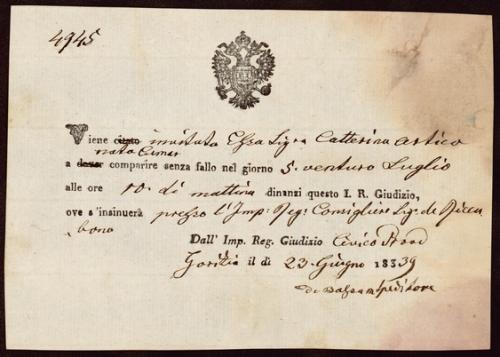 4945
Viene citato invitata Essa Sigra Catterina Artico
nata Cumar
a dover comparire senza fallo nel giorno 5. venturo Luglio
alle ore 10. di mattina dinanzi questo I. R. Giudizio,
ove s'insinuerà presso l'Imp: Reg: Consigliere Sig: de Ricca
bona
Dall' Imp. Reg. Giudizio Civico Prov
Gorizia il dì 23 Giugno 1839
Speditore